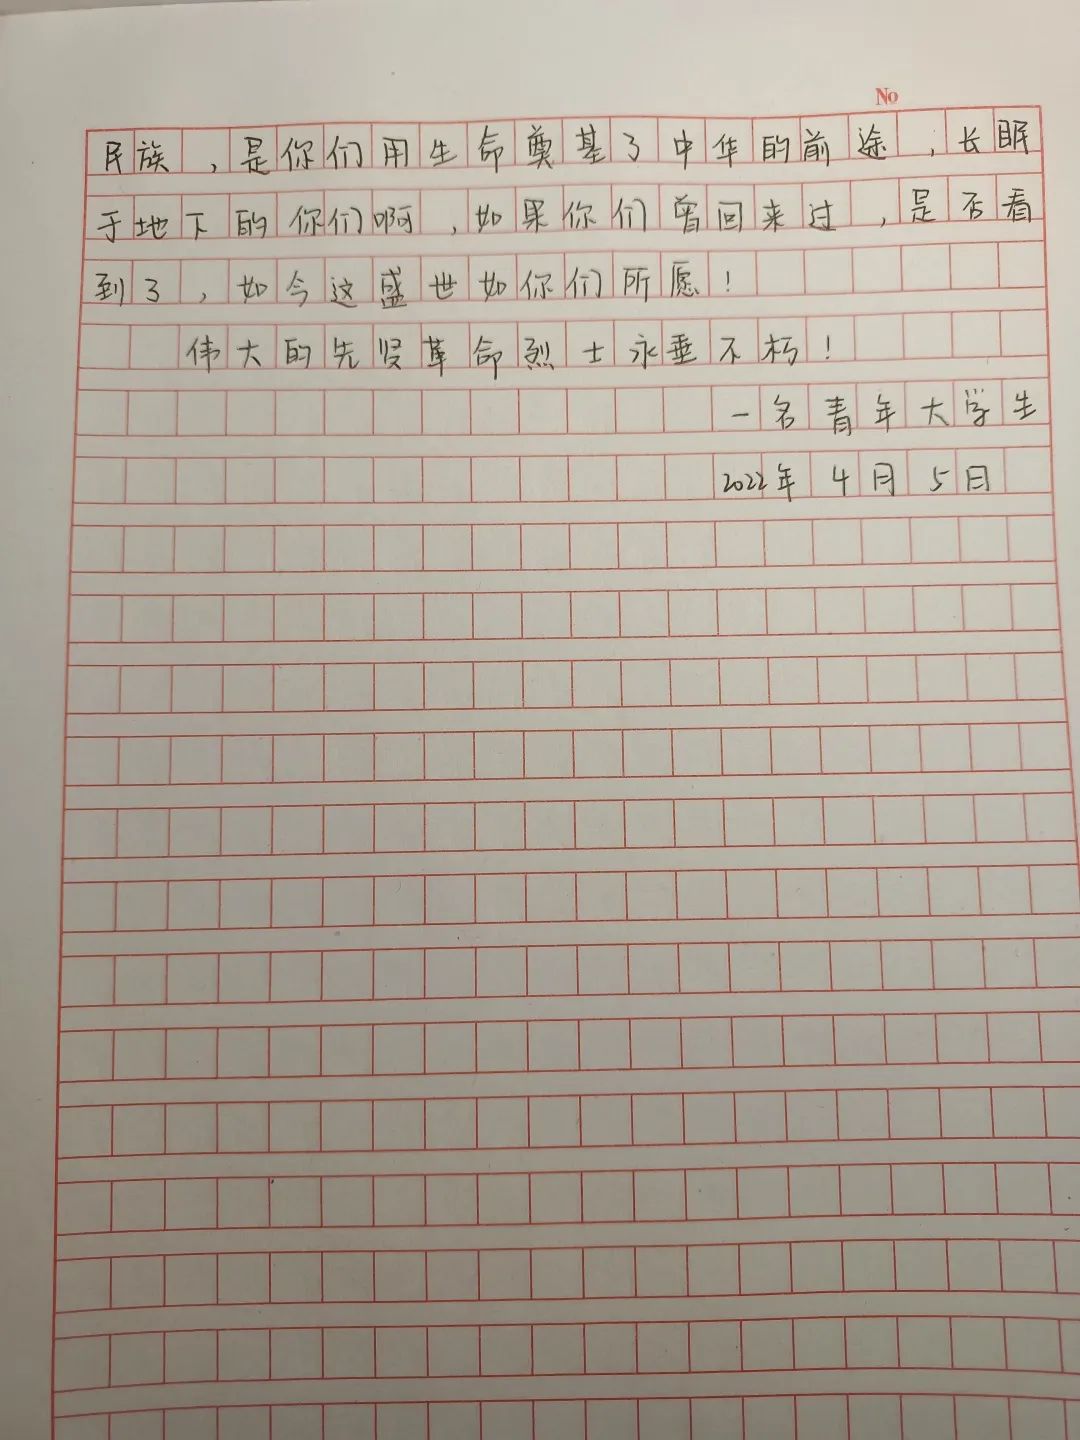 No
民族，是你们用生命奠基了中华的前途，长眠
于地下的你们啊，如果你们曾回来过，是否看
到了，如今这盛世如你们所愿！
伟大的先贤革命烈士永垂不朽！
一名青年大学生
2022年4月5日